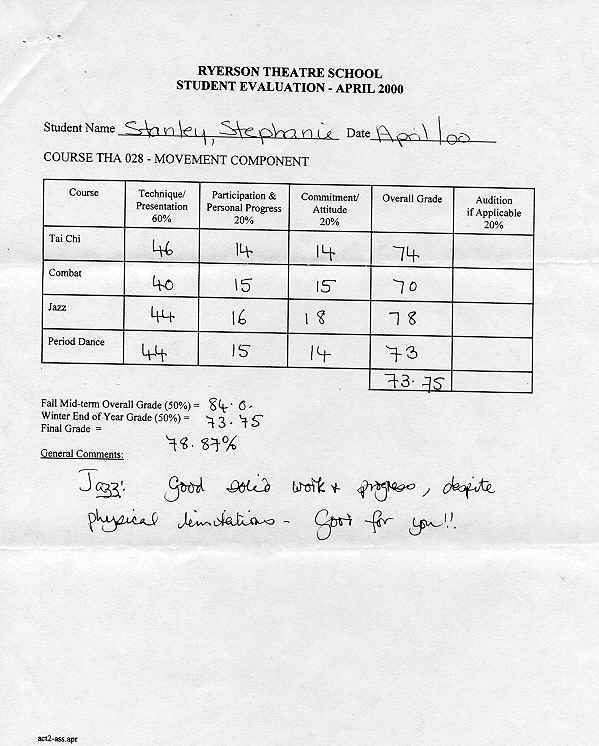 RYERSON THEATRE SCHOOL
STUDENT EVALUATION - APRIL 2000
Student Name Stanley, Stephanie Date April/00
COURSE THA 028 - MOVEMENT COMPONENT
Course Technique/ Presentation 60% Participation & Personal Progress 20% Commitment/ Attitude 20% Overall Grade Audition if Applicable 20%
Tai Chi 46 14 14 74
Combat 40 15 15 70
Jazz 44 16 18 78
Period Dance 44 15 14 73
73.75
Fall Mid-term Overall Grade (50%) = 84.0.
Winter End of Year Grade (50%) = 73.75
Final Grade =
78.87%
General Comments:
Jazz: Good solid work + progress, despite
physical limitations - Good for you!!
act2-ass.apr